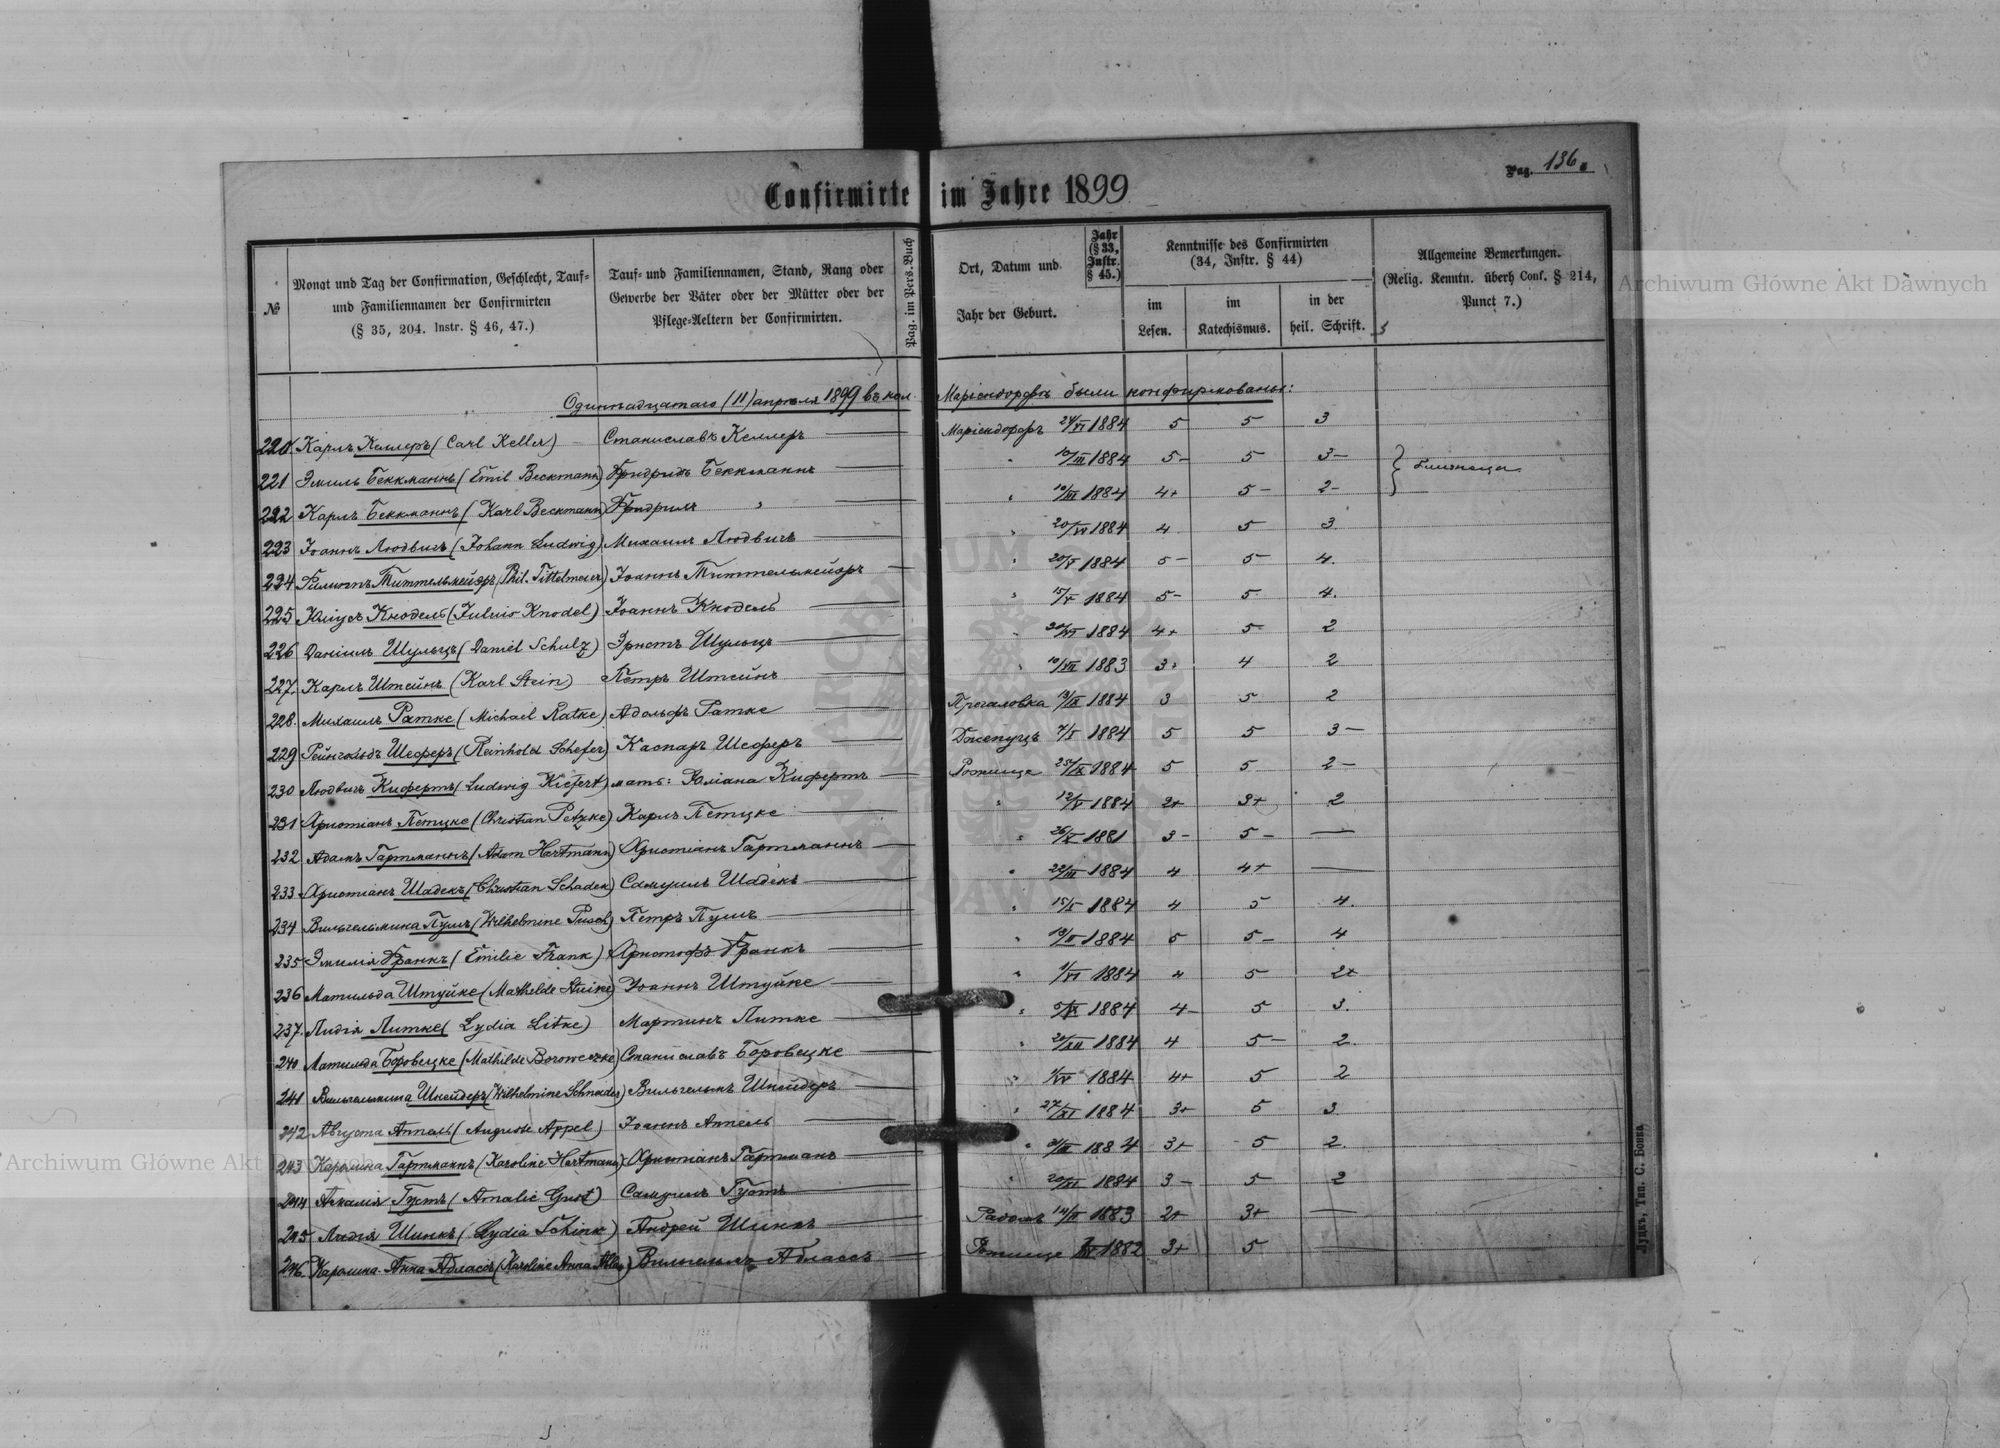 Pag. 136.
Confirmirte im Jahre 1899
№
Monat und Tag der Confirmation, Geschlecht, Tauf- und Familiennamen der Confirmirten (§ 35, 204. Instr. § 46, 47.)
Tauf- und Familiennamen, Stand, Rang oder Gewerbe der Väter oder der Mütter oder der Pflege-Aeltern der Confirmirten.
Pag. im Pers.-Buch
Ort, Datum und Jahr der Geburt.
Jahr (§ 33, Instr. § 45.)
Kenntnisse des Confirmirten (34, Instr. § 44)
im Lesen.
im Katechismus.
in der heil. Schrift.
Allgemeine Bemerkungen. (Relig. Kenntn. überh Conf. § 214, Punct 7.)
Одиннадцатаго (11) апрѣля 1899 въ кол. Маріендорфѣ были конфирмованы:
220. Карлъ Келлеръ (Carl Keller) Станиславъ Келлеръ Маріендорфъ 24/VI 1884 5 5 3
221 Эмиль Беккманнъ (Emil Beckmann) Фридрихъ Беккманнъ " 10/III 1884 5- 5 3- близнецы
222 Карлъ Беккманнъ (Karl Beckmann) Фридрихъ " " 10/III 1884 4+ 5- 2-
223 Іоаннъ Людвигъ (Johann Ludwig) Михаилъ Людвигъ " 1884 4 5 3
224 Филиппъ Титтельмейеръ (Phil. Tittelmeier) Іоаннъ Титтельмейеръ " 20/V 1884 5- 5 4.
225 Юліусъ Кнодель (Julius Knodel) Іоаннъ Кнодель " 15/V 1884 5- 5 4.
226 Даніилъ Шульцъ (Daniel Schulz) Эрнстъ Шульцъ " 1884 4+ 5 2
227. Карлъ Штейнъ (Karl Stein) Петръ Штейнъ " 10/VII 1883 3+ 4 2
228. Михаилъ Ратке (Michael Ratke) Адольфъ Ратке 13/IX 1884 3 5 2
229 Рейнгольдъ Шеферъ (Reinhold Schefer) Каспаръ Шеферъ 7/I 1884 5 5 3-
230 Людвигъ Кифертъ (Ludwig Kiefert) мать: Юліана Кифертъ Рожище 25/IX 1884 5 5 2-
231 Христіанъ Петцке (Christian Petzke) Карлъ Петцке " 12/V 1884 2+ 3+ 2
232 Адамъ Гартманнъ (Adam Hartmann) Христіанъ Гартманнъ " 26/X 1881 3- 5- —
233 Христіанъ Шадекъ (Christian Schadek) Самуилъ Шадекъ " 22/III 1884 4 4+ —
234 Вильгельмина Пушъ (Wilhelmine Pusch) Петръ Пушъ " 15/X 1884 4 5 4.
235 Эмилія Франкъ (Emilie Frank) Христофъ Франкъ " 19/II 1884 5 5- 4
236 Матильда Штуйке (Mathilde Stuike) Іоаннъ Штуйке " 1/VI 1884 4 5 2+
237. Лидія Литке (Lydia Litke) Мартинъ Литке " 5/IX 1884 4- 5 3.
240 Матильда Боровецке (Mathilde Boroweczke) Станиславъ Боровецке " 1884 4 5- 2.
241 Вильгельмина Шнейдеръ (Wilhelmine Schneider) Вильгельмъ Шнейдеръ " 1884 4+ 5 2
242 Августа Аппель (Auguste Appel) Іоаннъ Аппель " 27/XI 1884 3+ 5 3
243 Каролина Гартманнъ (Karoline Hartmann) Христіанъ Гартманъ " 1884 3+ 5 2.
244 Амалія Густъ (Amalie Gust) Самуилъ Густъ " 20/XI 1884 3- 5 2
245 Лидія Шинкъ (Lydia Schink) Андрей Шинкъ 14/II 1883 2+ 3+ —
246. Каролина-Анна Абласъ (Karoline Anna Ablas) Вильгельмъ Абласъ Рожище 1882 3+ 5 —
Луцкъ, Тип. С. Бонва
Archiwum Główne Akt Dawnych
Archiwum Główne Akt Dawnych